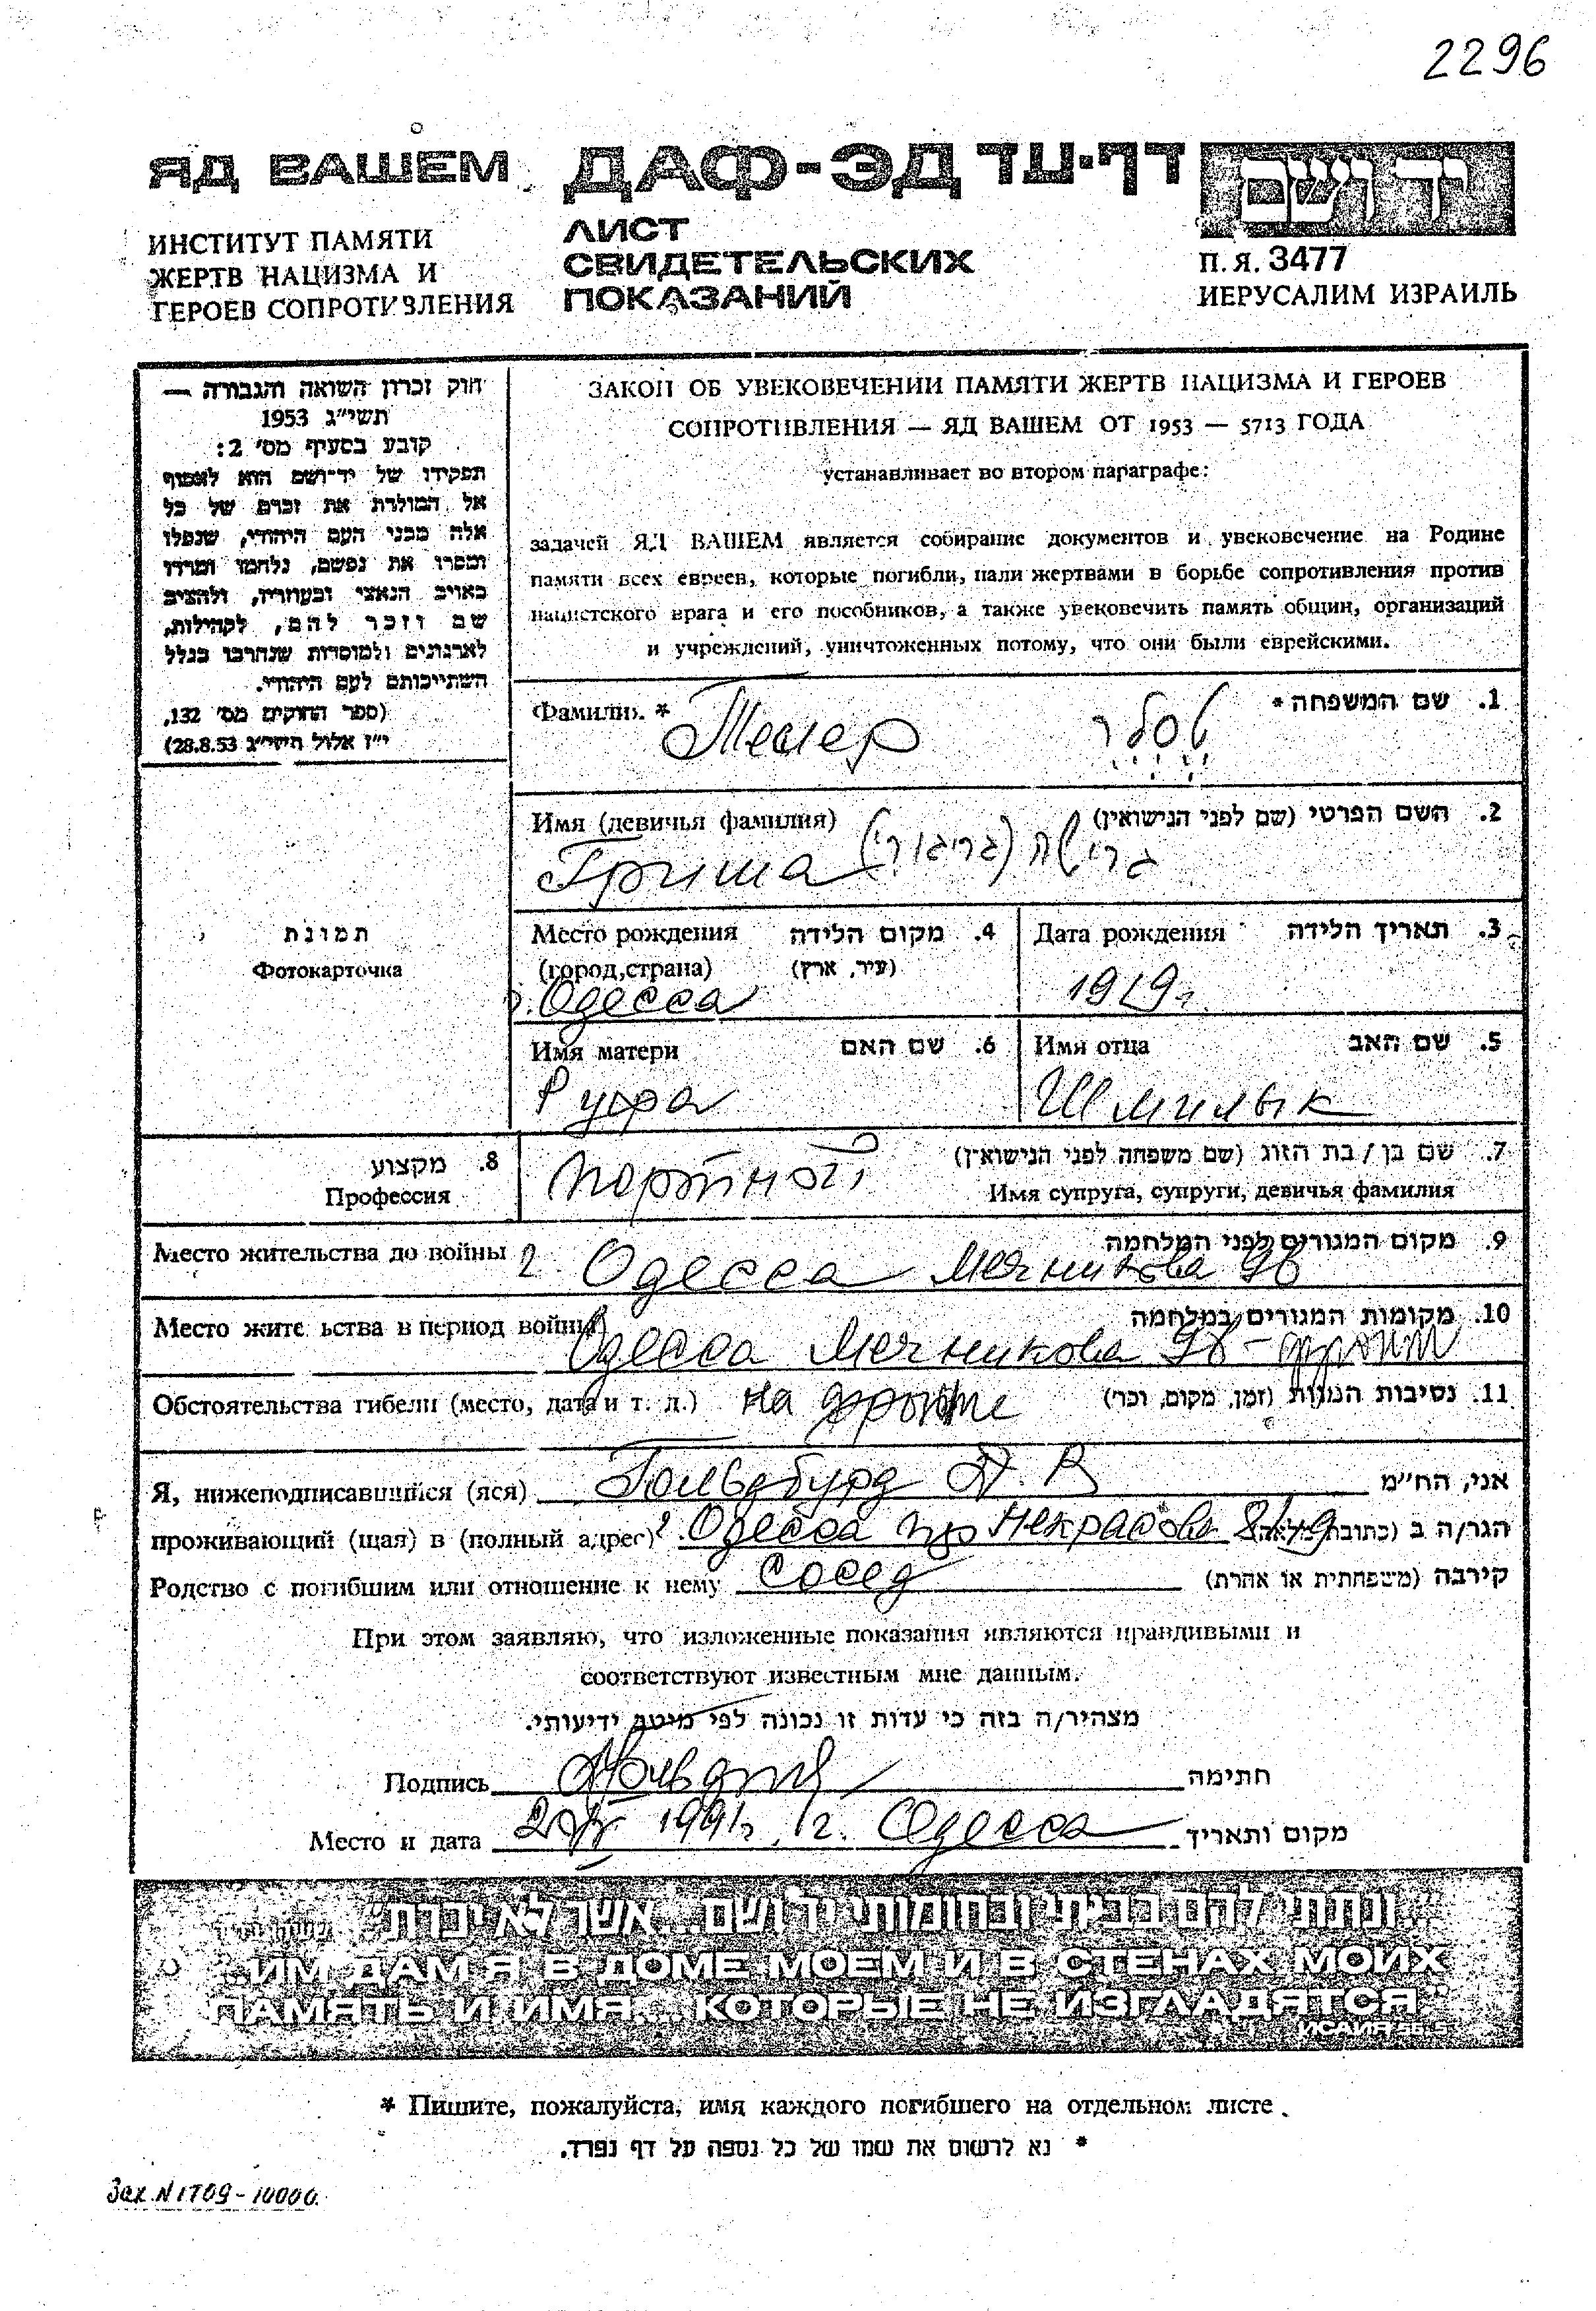 2296
ЯД ВАШЕМ
ИНСТИТУТ ПАМЯТИ
ЖЕРТВ НАЦИЗМА И
ГЕРОЕВ СОПРОТИВЛЕНИЯ
ДАФ-ЭД דף-עד
ЛИСТ
СВИДЕТЕЛЬСКИХ
ПОКАЗАНИЙ
יד ושם
П.Я. 3477
ИЕРУСАЛИМ ИЗРАИЛЬ
חוק זכרון השואה והגבורה —
תשי״ג 1953
קובע בסעיף מס׳ 2:
תפקידו של יד־ושם הוא לאסוף
אל המולדת את זכרם של כל
אלה מבני העם היהודי, שנפלו
ומסרו את נפשם, נלחמו ומרדו
באויב הנאצי ובעוזריו, ולהציב
שם וזכר להם, לקהילות,
לארגונים ולמוסדות שנחרבו בגלל
השתייכותם לעם היהודי.
(ספר החוקים מס׳ 132,
י״ז אלול תשי״ג 28.8.53)
ЗАКОН ОБ УВЕКОВЕЧЕНИИ ПАМЯТИ ЖЕРТВ НАЦИЗМА И ГЕРОЕВ
СОПРОТИВЛЕНИЯ — ЯД ВАШЕМ ОТ 1953 — 5713 ГОДА
устанавливает во втором параграфе:
задачей ЯД ВАШЕМ является собирание документов и увековечение на Родине
памяти всех евреев, которые погибли, пали жертвами в борьбе сопротивления против
нацистского врага и его пособников, а также увековечить память общин, организаций
и учреждений, уничтоженных потому, что они были еврейскими.
Фамилия * 1. שם המשפחה *
Теслер טסלר
Имя (девичья фамилия) 2. השם הפרטי (שם לפני הנישואין)
Гриша גרישה (גריגורי)
תמונת
Фотокарточка
Место рождения 4. מקום הלידה
(город, страна) (עיר, ארץ)
г. Одесса
Дата рождения 3. תאריך הלידה
1919 г.
Имя матери 6. שם האם
Руфа
Имя отца 5. שם האב
Шмилык
8. מקצוע
Профессия
портной
7. שם בן / בת הזוג (שם משפחה לפני הנישואין)
Имя супруга, супруги, девичья фамилия
Место жительства до войны г Одесса Мечникова 9. מקום המגורים לפני המלחמה
Место жительства в период войны Одесса Мечникова - фронт 10. מקומות המגורים במלחמה
Обстоятельства гибели (место, дата и т. д.) на фронте 11. נסיבות המוות (זמן, מקום, וכו׳)
Я, нижеподписавшийся (яся) Гольдбурд אני, הח״מ
проживающий (щая) в (полный адрес) г. Одесса Некрасова הגר/ה ב (כתובת מלאה)
Родство с погибшим или отношение к нему Сосед קירבה (משפחתית או אחרת)
При этом заявляю, что изложенные показания являются правдивыми и
соответствуют известным мне данным.
מצהיר/ה בזה כי עדות זו נכונה לפי מיטב ידיעותי.
Подпись חתימה
Место и дата 1991г. г. Одесса מקום ותאריך
״...ונתתי להם בביתי ובחומותי יד ושם... אשר לא יכרת״
„...ИМ ДАМ Я В ДОМЕ МОЕМ И В СТЕНАХ МОИХ
ПАМЯТЬ И ИМЯ... КОТОРЫЕ НЕ ИЗГЛАДЯТСЯ"
* Пишите, пожалуйста, имя каждого погибшего на отдельном листе.
* נא לרשום את שמו של כל נספה על דף נפרד.
Зак. N 1709 - 10000.